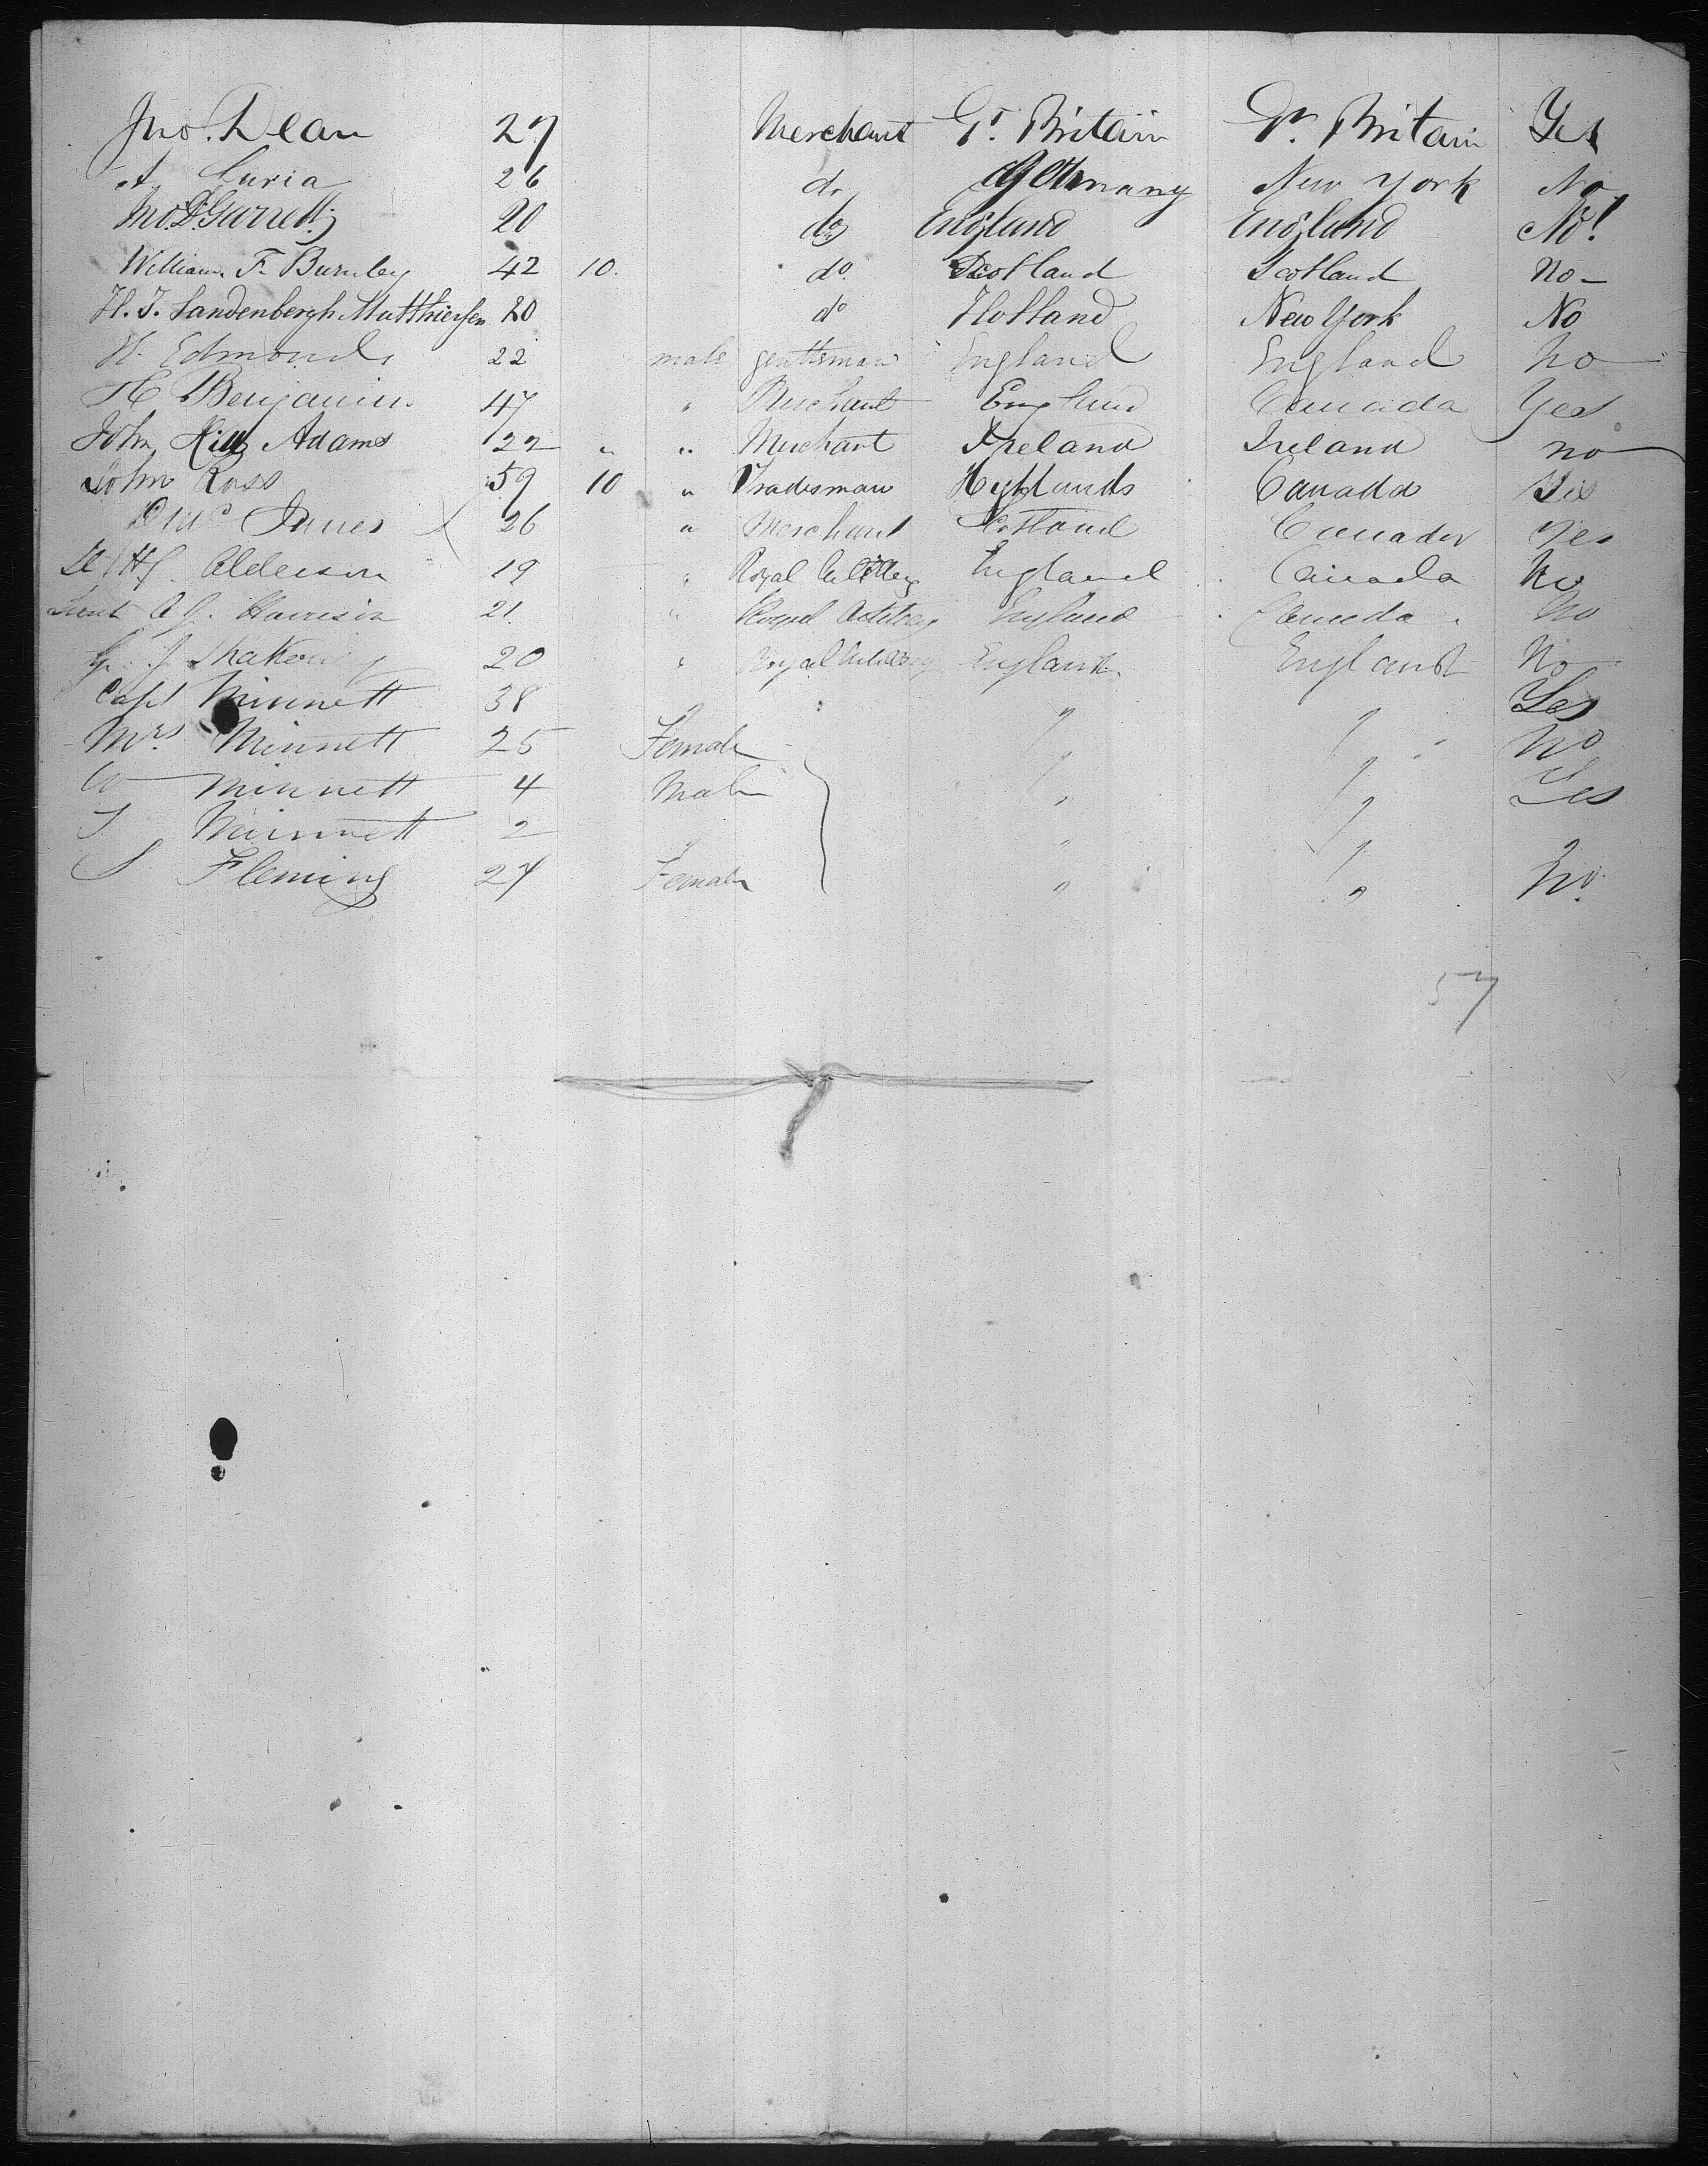 Jno. Dean 27 Merchant Gt. Britain Gr. Britain Yes
A Curia 26 do Germany New York No
20 do England England No!
William F. Burnley 42 10. do Scotland Scotland No
H. J. Sandenbergh Matthiessen 20 do Holland New York No
H. Edmonds 22 male gentleman England England no
H Benjamin 47 " Merchant England Canada Yes
John Hill Adams 22 " " Merchant Ireland Ireland no
John Ross 59 10 " Tradesman Canada Yes
Innes 26 " Merchant Scotland Canada Yes
Alderson 19 " Royal Artillery England Canada No
Lieut A J. Harrison 21. " Royal Artillery England Canada No
G. J. 20 " Royal Artillery England England No
Capt Minnett 38 " " Yes
Mrs Minnett 25 Female " " no
W Minnett 4 Male " " Yes
J Minnett 2 " " "
S Fleming 27 Female " " No.
57